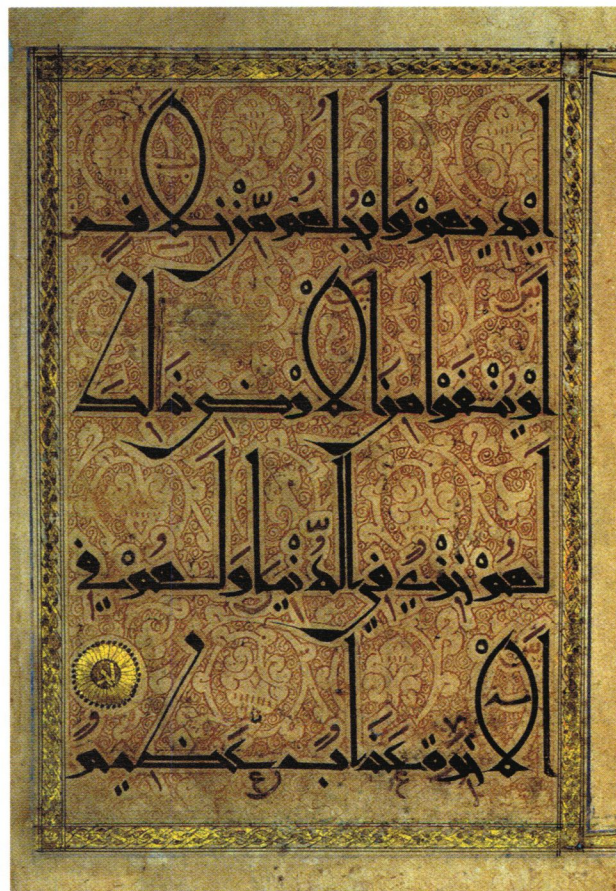 اَيْدِيهِمْ وَاَرْجُلُهُمْ مِّنْ خِلَافٍ
اَوْ يُنْفَوْا مِنَ الْاَرْضِ ذٰلِكَ
لَهُمْ خِزْيٌ فِي الدُّنْيَا وَلَهُمْ فِي
الْاٰخِرَةِ عَذَابٌ عَظِيمٌ